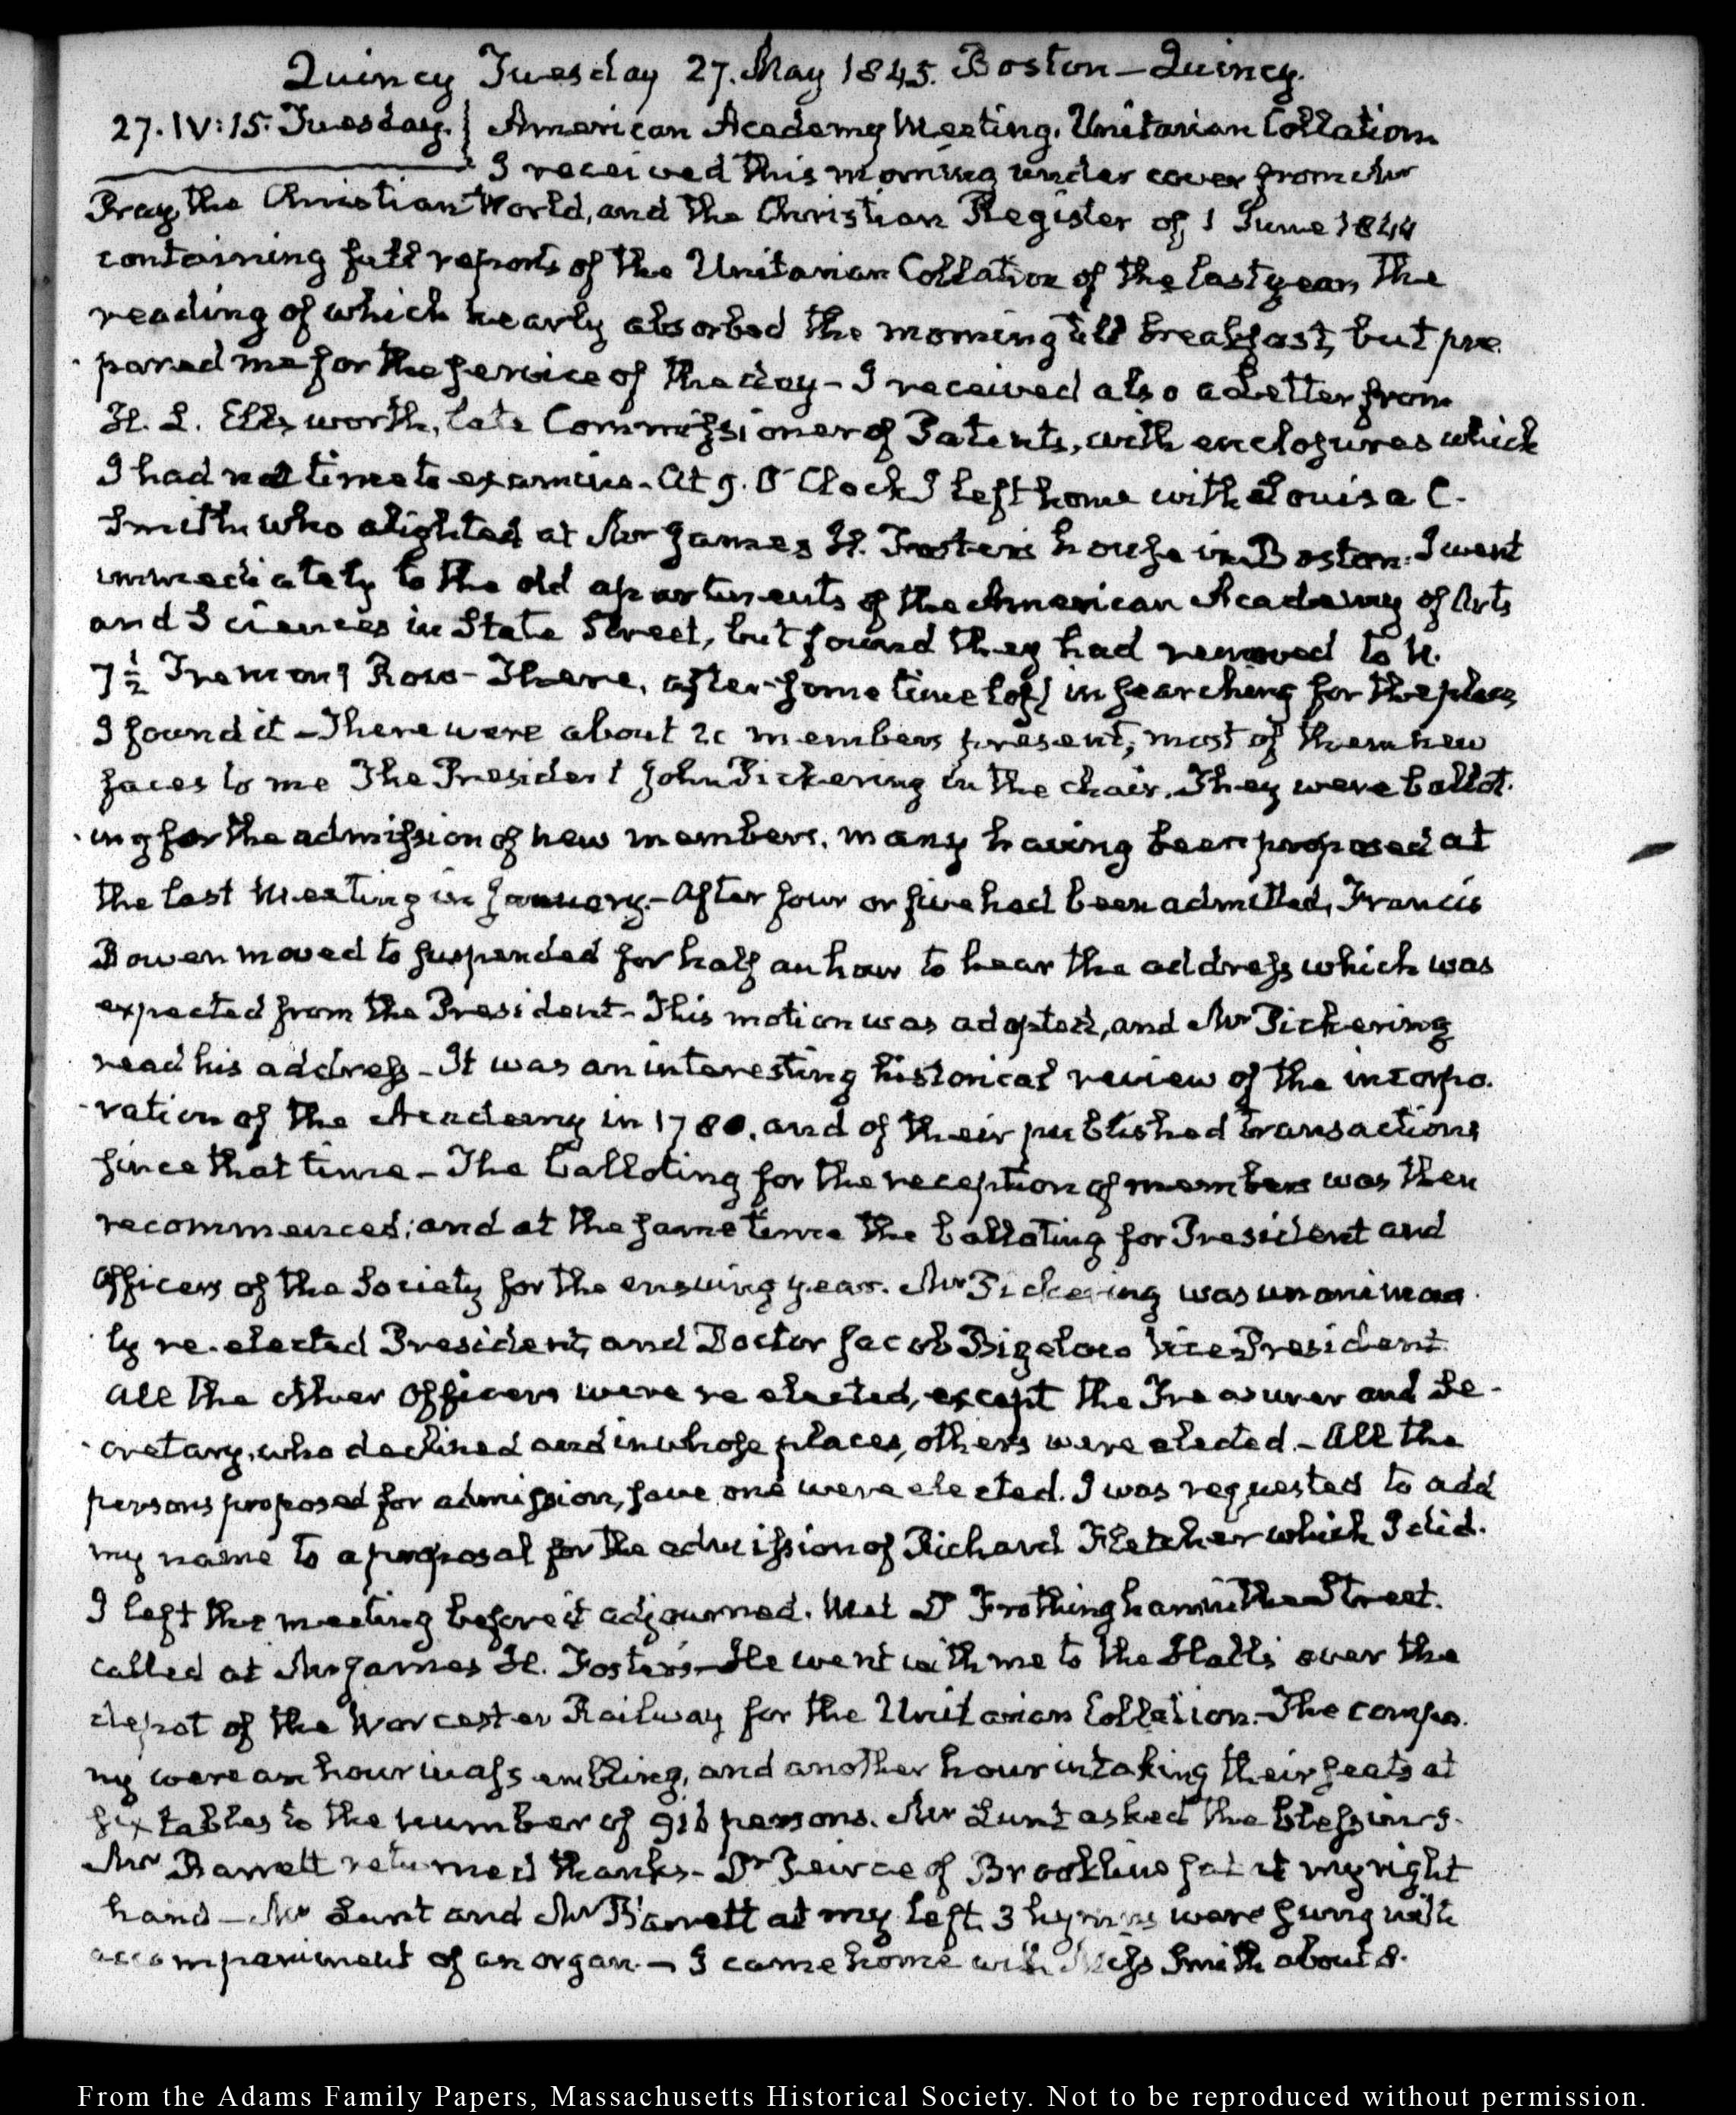 Quincy Tuesday 27. May 1845. Boston—Quincy.
27. IV:15. Tuesday. } American Academy Meeting. Unitarian Collation
I received this morning under cover from Mr
Pray, the Christian World, and the Christian Register of 1 June 1844
containing full reports of the Unitarian Collation of the last year, the
reading of which nearly absorbed the morning till breakfast, but pre
pared me for the service of the day— I received also a Letter from
H. L. Ellsworth, late Commissioner of Patents, with enclosures which
I had not time to examine— At 9. O'Clock I left home with Louisa C.
Smith who alighted at Mr James H. Foster's house in Boston. I went
immediately to the old apartments of the American Academy of Arts
and Sciences in State Street, but found they had removed to N.
7½ Tremont Row— There, after some time lost in searching for the place
I found it— There were about 20 members present, most of them new
faces to me The President John Pickering in the chair. They were ballot.
ing for the admission of new members, many having been proposed at
the last Meeting in January.— After four or five had been admitted, Francis
Bowen moved to suspended for half an hour to hear the address which was
expected from the President— This motion was adopted, and Mr Pickering
read his address— It was an interesting historical review of the incorpo.
-ration of the Academy in 1780. and of their published transactions
since that time— The balloting for the reception of members was then
recommenced; and at the same time the ballating for President and
Officers of the Society for the ensuing year. Mr Pickering was unanimou
ly re-elected President, and Doctor Jacob Bigelow Vice President
All the other Officers were re elected, except the Treasurer and Se-
-cretary, who declined and in whose places, others were elected.— All the
persons proposed for admission, save one were elected. I was requested to add
my name to a proposal for the admission of Richard Fletcher which I did.
I left the meeting before it adjourned. Met Dr Frothingham in the Street.
called at Mr James H. Foster's— He went with me to the Halls over the
depot of the Worcester Railway for the Unitarian Collation.— The compa.
ny were an hour in assembling, and another hour in taking their seats at
six tables to the number of 916 persons. Mr Lunt asked the blessing.
Mr Barrett returned thanks— Dr Peirce of Brookline sat at my right
hand— Mr Lunt and Mr Barrett at my left. 3 hymns were sung with
accompaniment of an organ.— I came home with Miss Smith about 8.
From the Adams Family Papers, Massachusetts Historical Society. Not to be reproduced without permission.